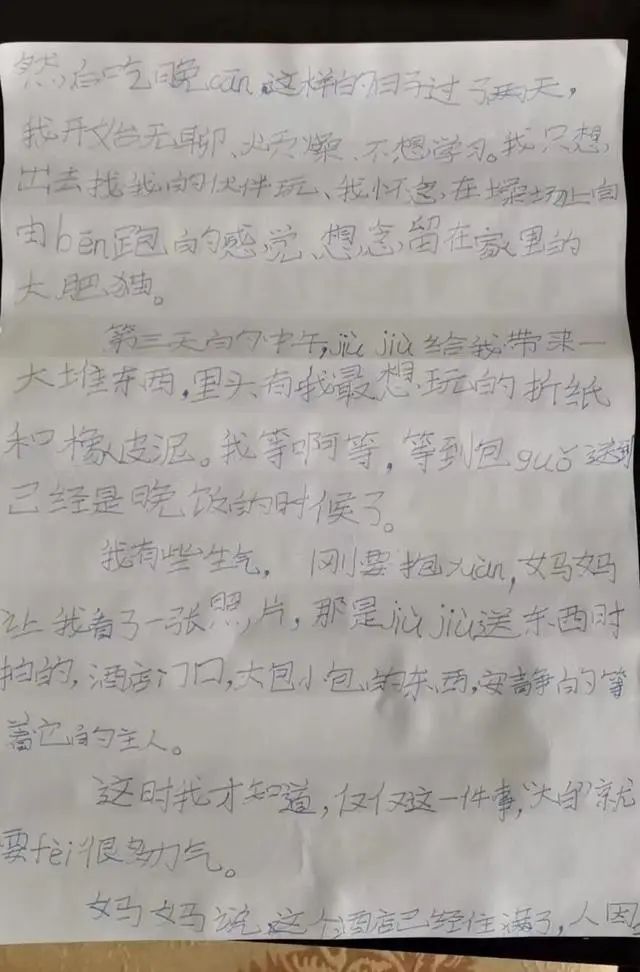 然后吃晚cān,这样的日子过了两天,
我开始无聊、烦燥、不想学习。我只想
出去找我的伙伴玩、我怀念,在操场上自
由bēn跑的感觉,想念留在家里的
大肥猫。
第三天的中午,jiù jiù给我带来一
大堆东西,里头有我最想玩的折纸
和橡皮泥。我等啊等,等到包guǒ送到
已经是晚饭的时候了。
我有些生气, 刚要抱yuàn,妈妈
让我看了一张照片,那是jiù jiù送东西时
拍的,酒店门口,大包小包的东西,安静的等
着它的主人。
这时我才知道,仅仅这一件事,“大白”就
要fèi很多力气。
妈妈说,这个酒店已经住满了,人因